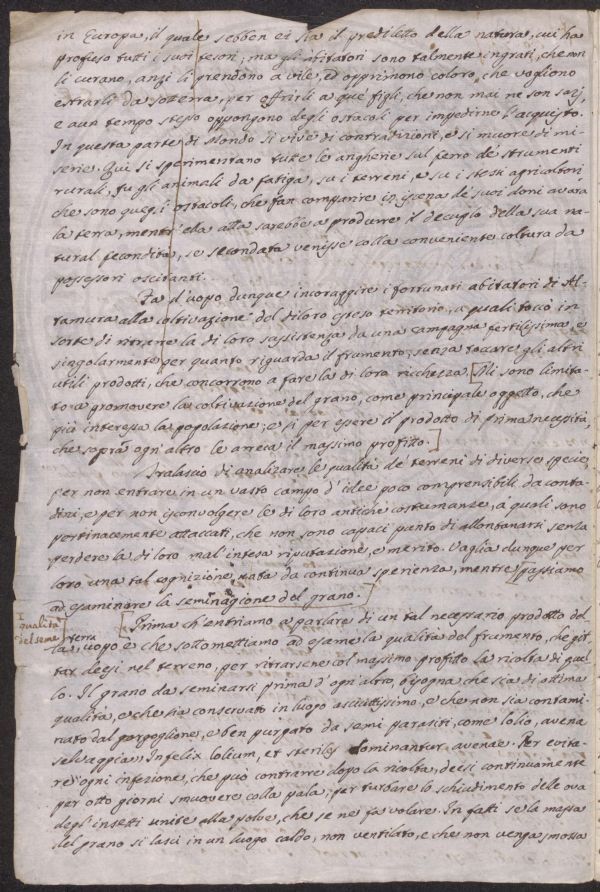 in Europa, il quale sebben ei sia il prediletto della natura, cui ha
profuso tutti i suoi tesori; ma gli abitatori sono talmente ingrati, che non
li curano, anzi li prendono a vile, ed opprimono coloro, che vogliono
estrarli da sotterra, per offrirli a que' figli, che non mai ne son sazj,
e a un tempo stesso oppongono degli ostacoli per impedirne l'acquisto.
In questa parte di Mondo si vive di contradizioni, e si muore di mi-
serie. Qui si sperimentano tutte le angherie sul ferro de' strumenti
rurali, su gli animali da fatiga, su i terreni, e su i stessi agricoltori
che sono quegl'i ostacoli, che fan comparire in iscena de' suoi doni avara
la terra, mentr'ella atta sarebbe a produrre il decuplo della sua na-
tural fecondità, se secondata venisse colla conveniente coltura da
possessori oscitanti.
Fa d'uopo dunque incoraggire i fortunati abitatori di Al-
tamura alla coltivazione del di loro esteso territorio, a quali toccò in
sorte di ritrarre la di loro sussistenza da una campagna fertilissima, e
singolarmente per quanto riguarda il frumento, senza toccare gli altri
utili prodotti, che concorrono a fare la di loro richezza. [Mi sono limita-
to a promovere la coltivazione del grano, come principale oggetto, che
più interessa la popolazione; e sì per essere il prodotto di prima necessità,
che sopra ogn'altro le arreca il massimo profitto.]
Tralascio di analizare le qualità de' terreni di diverse specie,
per non entrare in un vasto campo d'idee poco comprensibili da conta-
dini, e per non isconvolgere le di loro antiche costumanze, a' quali sono
pertinacemente attaccati, che non sono capaci punto di allontanarsi senza
perdere la di loro mal'intesa riputazione, e merito. Vaglia dunque per
loro una tal cognizione, nata da continua sperienza, mentre passiamo
ad esaminare la seminagione del grano.
I
qualità
del seme
[Prima ch'entriamo a parlare di un tal necessario prodotto del
la terra, uopo è che sottomettiamo ad esame la qualità del frumento, che git-
tar deesi nel terreno, per ritrarsene col massimo profitto la ricolta di quel-
lo. Il grano da seminarsi prima d'ogn'altro, bisogna che sia di ottima
qualità, e che sia conservato in luogo asciuttissimo, e che non sia contami-
nato dal gorgoglione, e ben purgato da semi parasiti, come lolio, avena
selvaggia. Infelix lolium, et steriles dominantur avenae. Per evita-
re ogni infezione, che può contrarre dopo la ricolta, deesi continuamente
per otto giorni smuovere colla pala, per turbare lo schiudimento delle ova
degl'insetti unite alla polve, che se ne fa volare. In fatti se la massa
del grano si lasci in un luogo caldo, non ventilato, e che non venga smossa